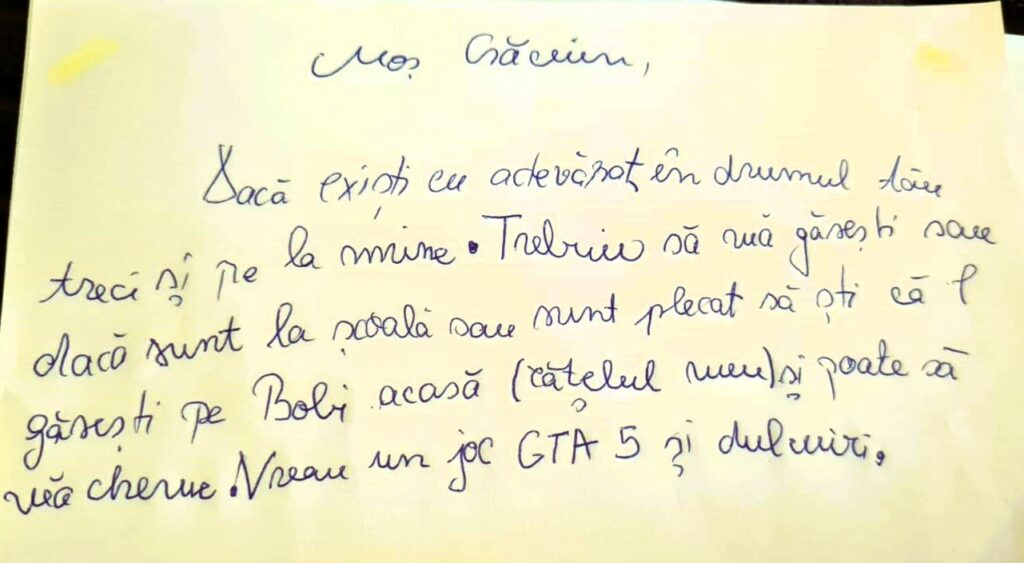 Moș Crăciun,
Dacă exiști cu adevărat, în drumul tău
treci și pe la mine. Trebuie să mă găsești sau
dacă sunt la școală sau sunt plecat să ști că l
găsești pe Bobi acasă (cățelul meu) și poate să
mă cheme. Vreau un joc GTA 5 și dulciuri.